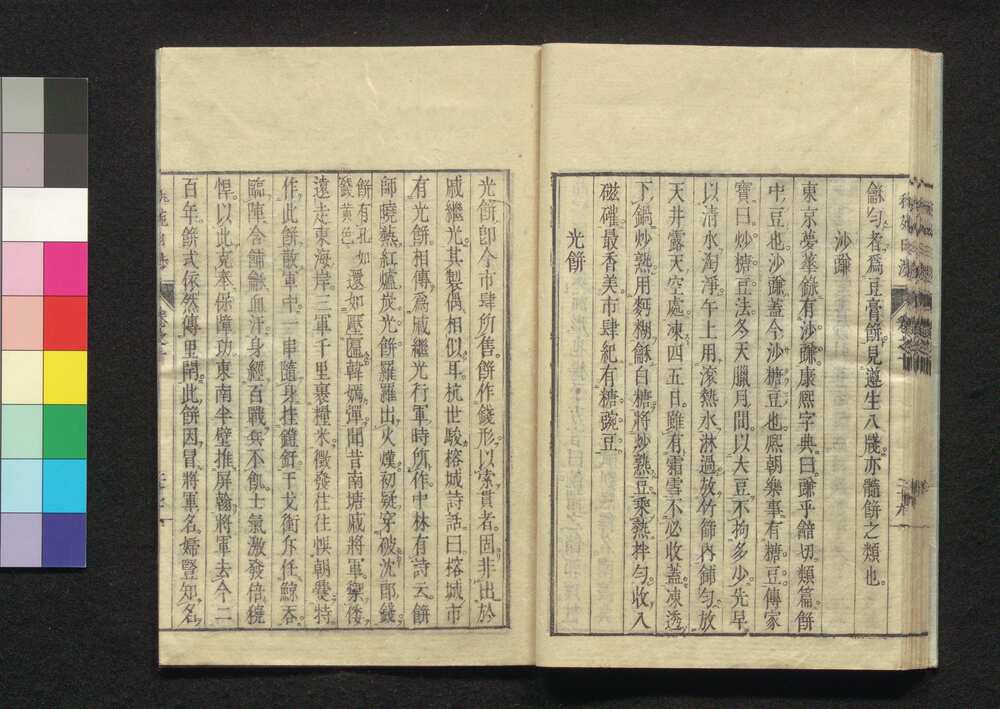 龢勻者爲豆膏餅見遵生八牋亦髓餅之類也
沙䭔
東京夢華錄有沙䭔康熙字典曰䭔乎䭔切類篇餅
中豆也沙䭔蓋今沙糖豆也熙朝樂事有糖豆傳家
寶曰炒糖豆法冬天臘月間以大豆不拘多少先早
以清水淘淨午上用滾熱水淋過放竹篩內鋪勻放
天井露天空處凍四五日雖有霜雪不必收蓋凍透
下鍋炒熟用麪糊龢白糖將炒熟豆乘熱拌勻收入
磁礶最香美市肆紀有糖豌豆
光餅
光餅卽今市肆所售餅作錢形以索貫者固非出於
戚繼光其製偶相似耳杭世駿榕城詩話曰榕城市
有光餅相傳爲戚繼光行軍時所作中林有詩云餅
師曉熱紅爐炭光餅羅羅出火燠初疑穿破沈郎錢
餅有孔如
發黃色
還如壓匾韓嫣彈聞昔南塘戚將軍禦倭
遠走東海岸三軍千里裹糧米徵發往往悞朝爨特
作此餅散軍中一串隨身挂鐙釬干戈衝斥任鯨吞
臨陣含餔龢血汗身經百戰兵不飢士氣激發倍獟
悍以此克奉保障功東南半壁推屏翰將軍去今二
百年餅式依然傳里閈此餅因冒將軍名婦豎知名